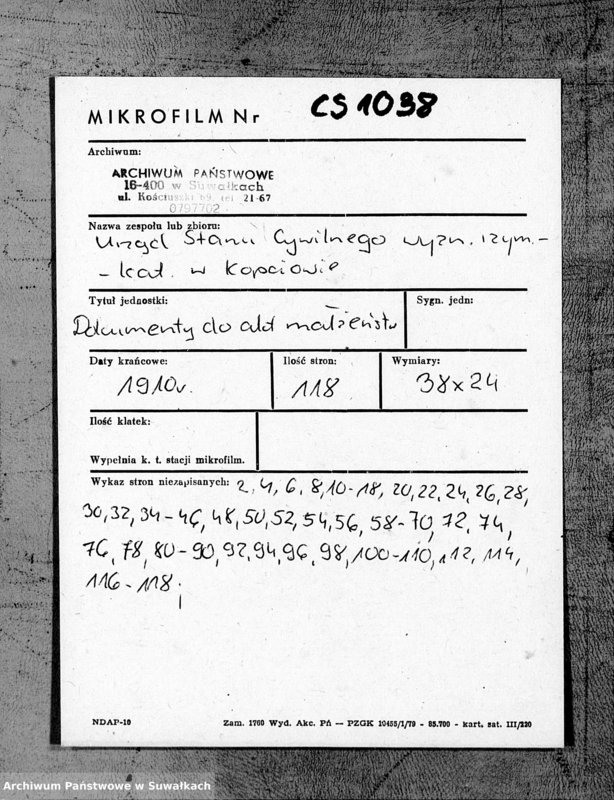 MIKROFILM Nr CS 1038
Archiwum:
ARCHIWUM PAŃSTWOWE
16-400 w Suwałkach
ul. Kościuszki 69, tel 21-67
0797702
Nazwa zespołu lub zbioru:
Urząd Stanu Cywilnego wyzn. rzym.-
- kat. w Kopciowie
Tytuł jednostki: Sygn. jedn:
Dokumenty do akt małżeństw
Daty krańcowe: Ilość stron: Wymiary:
1910r. 118 38x24
Ilość klatek:
Wypełnia k. t. stacji mikrofilm.
Wykaz stron niezapisanych: 2, 4, 6, 8, 10-18, 20, 22, 24, 26, 28,
30, 32, 34-46, 48, 50, 52, 54, 56, 58-70, 72, 74,
76, 78, 80-90, 92, 94, 96, 98, 100-110, 112, 114,
116-118;
NDAP-10 Zam. 1760 Wyd. Akc. Pń — PZGK 10455/1/79 - 85.700 - kart. sat. III/220
Archiwum Państwowe w Suwałkach